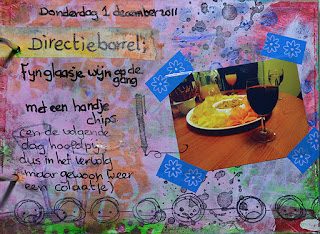 Donderdag 1 december 2011
Directieborrel;
Fijn glaasje wijn op de
gang
met een handje
chips
(en de volgende
dag hoofdpijn
dus in het vervolg
maar gewoon weer
een colaatje)